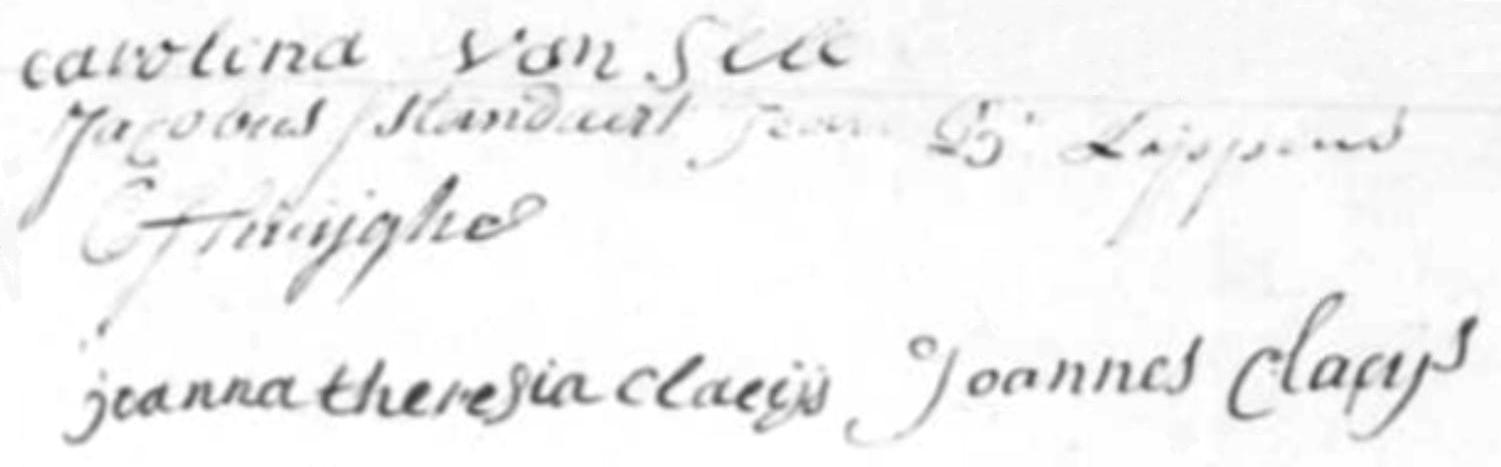 carolina van Sele
Jacobus standaert Jean Bt Lippens
joanna theresia claeijs Joannes Claeijs